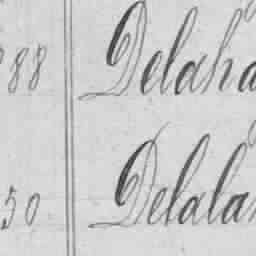 88 Delaha
50 Delalan